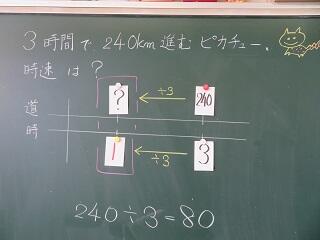 3時間で240km進むピカチュー、
時速は?
道 ? ←÷3 240
時 1 ←÷3 3
240÷3=80